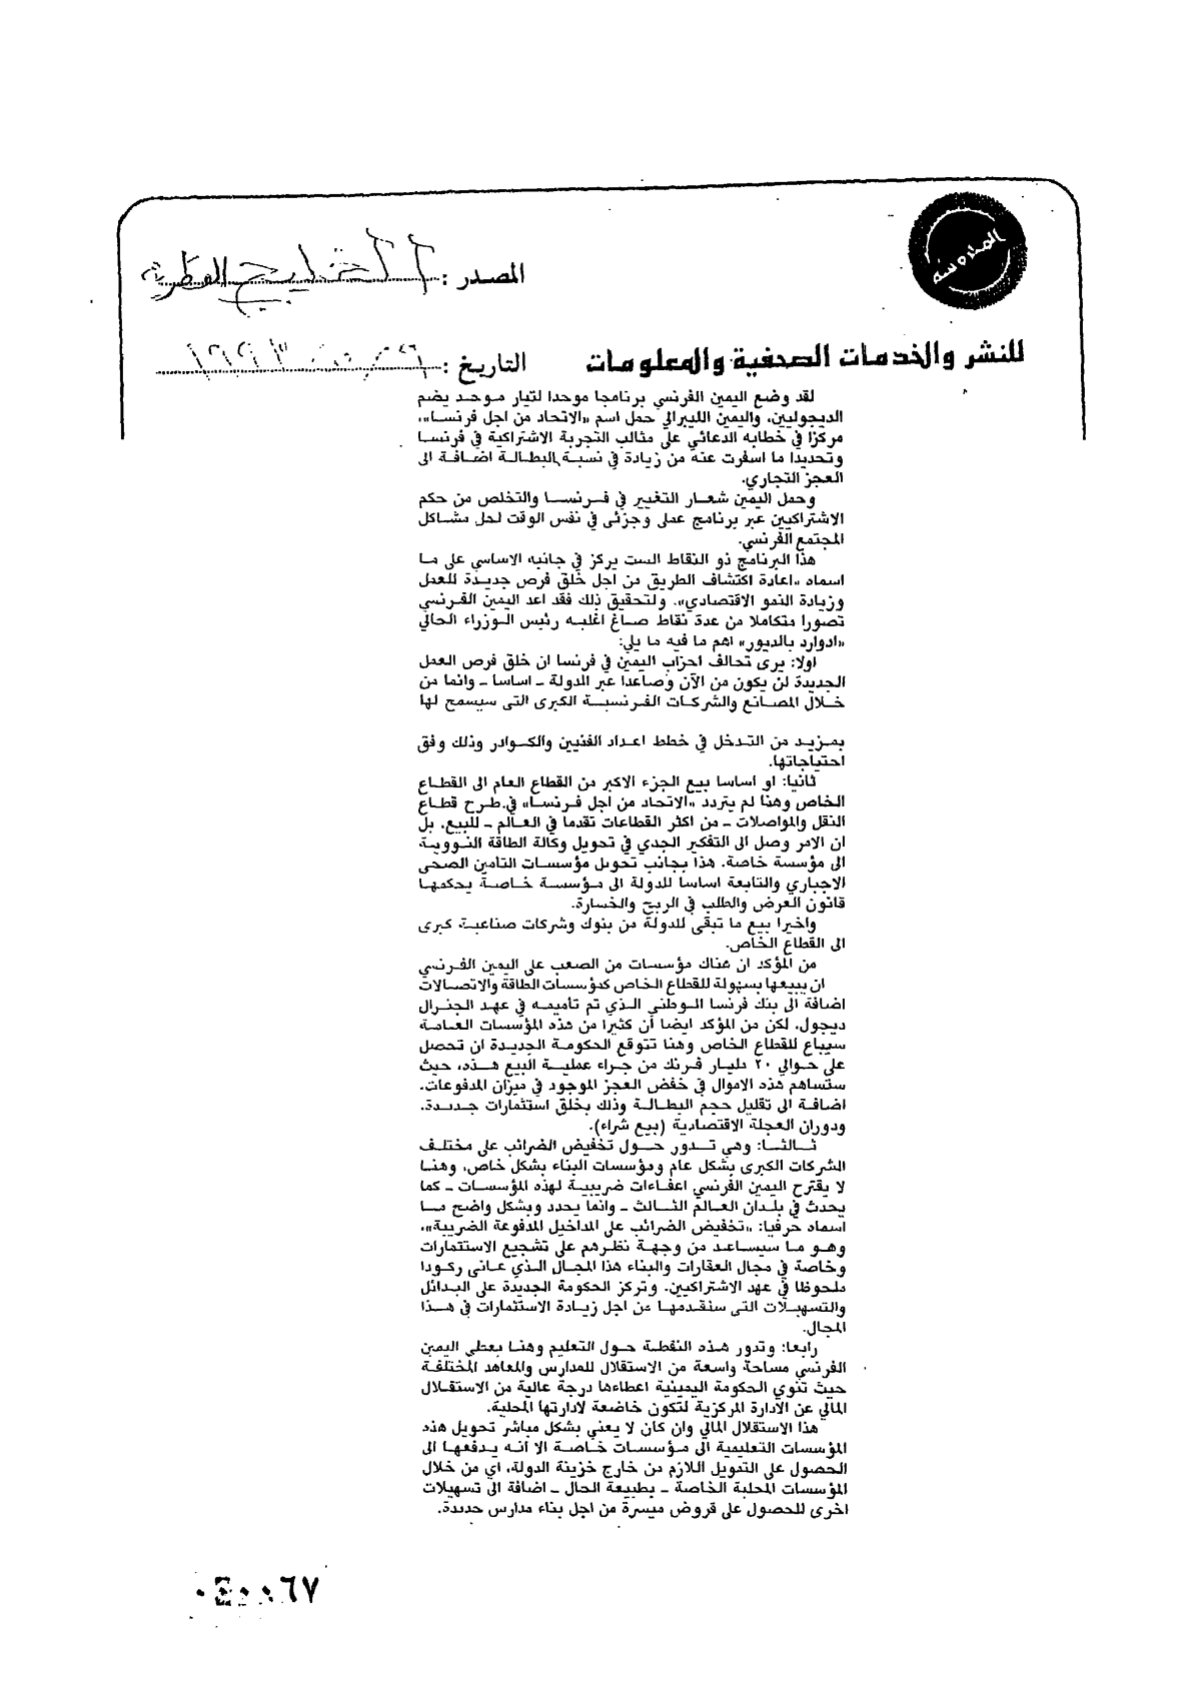 المحروسة
المصدر : الخليج القطرية
للنشر والخدمات الصحفية والمعلومات
التاريخ : ١٩٩٣
لقد وضع اليمين الفرنسي برنامجا موحدا لتيار موحد يضم
الديجوليين، واليمين الليبرالي حمل اسم «الاتحاد من اجل فرنسا»،
مركزا في خطابه الدعائي على مثالب التجربة الاشتراكية في فرنسا
وتحديدا ما اسفرت عنه من زيادة في نسبة البطالة اضافة الى
العجز التجاري.
وحمل اليمين شعار التغيير في فرنسا والتخلص من حكم
الاشتراكيين عبر برنامج عملى وجزئى في نفس الوقت لحل مشاكل
المجتمع الفرنسي.
هذا البرنامج ذو النقاط الست يركز في جانبه الاساسي على ما
اسماه «اعادة اكتشاف الطريق من اجل خلق فرص جديدة للعمل
وزيادة النمو الاقتصادي». ولتحقيق ذلك فقد اعد اليمين الفرنسي
تصورا متكاملا من عدة نقاط صاغ اغلبه رئيس الوزراء الحالي
«ادوارد بالديور» اهم ما فيه ما يلي:
اولا: يرى تحالف احزاب اليمين في فرنسا ان خلق فرص العمل
الجديدة لن يكون من الآن وصاعدا عبر الدولة - اساسا - وانما من
خلال المصانع والشركات الفرنسية الكبرى التى سيسمح لها
بمزيد من التدخل في خطط اعداد الفنيين والكوادر وذلك وفق
احتياجاتها.
ثانيا: او اساسا بيع الجزء الاكبر من القطاع العام الى القطاع
الخاص وهنا لم يتردد «الاتحاد من اجل فرنسا» في طرح قطاع
النقل والمواصلات - من اكثر القطاعات تقدما في العالم - للبيع، بل
ان الامر وصل الى التفكير الجدي في تحويل وكالة الطاقة النووية
الى مؤسسة خاصة. هذا بجانب تحويل مؤسسات التامين الصحى
الاجباري والتابعة اساسا للدولة الى مؤسسة خاصة يحكمها
قانون العرض والطلب في الربح والخسارة.
واخيرا بيع ما تبقى للدولة من بنوك وشركات صناعية كبرى
الى القطاع الخاص.
من المؤكد ان هناك مؤسسات من الصعب على اليمين الفرنسي
ان يبيعها بسهولة للقطاع الخاص كمؤسسات الطاقة والاتصالات
اضافة الى بنك فرنسا الوطنى الذي تم تأميمه في عهد الجنرال
ديجول، لكن من المؤكد ايضا أن كثيرا من هذه المؤسسات العامة
سيباع للقطاع الخاص وهنا تتوقع الحكومة الجديدة ان تحصل
على حوالي ٢٠ مليار فرنك من جراء عملية البيع هذه، حيث
ستساهم هذه الاموال في خفض العجز الموجود في ميزان المدفوعات.
اضافة الى تقليل حجم البطالة وذلك بخلق استثمارات جديدة.
ودوران العجلة الاقتصادية (بيع شراء).
ثالثا: وهي تدور حول تخفيض الضرائب على مختلف
الشركات الكبرى بشكل عام ومؤسسات البناء بشكل خاص، وهنا
لا يقترح اليمين الفرنسي اعفاءات ضريبية لهذه المؤسسات - كما
يحدث في بلدان العالم الثالث - وانما يحدد وبشكل واضح ما
اسماه حرفيا: «تخفيض الضرائب على المداخيل المدفوعة الضريبة»،
وهو ما سيساعد من وجهة نظرهم على تشجيع الاستثمارات
وخاصة في مجال العقارات والبناء هذا المجال الذي عانى ركودا
ملحوظا في عهد الاشتراكيين. وتركز الحكومة الجديدة على البدائل
والتسهيلات التى ستقدمها من اجل زيادة الاستثمارات في هذا
المجال.
رابعا: وتدور هذه النقطة حول التعليم وهنا يعطى اليمين
الفرنسي مساحة واسعة من الاستقلال للمدارس والمعاهد المختلفة
حيث تنوي الحكومة اليمينية اعطاءها درجة عالية من الاستقلال
المالي عن الادارة المركزية لتكون خاضعة لادارتها المحلية.
هذا الاستقلال المالي وان كان لا يعني بشكل مباشر تحويل هذه
المؤسسات التعليمية الى مؤسسات خاصة الا أنه يدفعها الى
الحصول على التمويل اللازم من خارج خزينة الدولة، اي من خلال
المؤسسات المحلية الخاصة - بطبيعة الحال - اضافة الى تسهيلات
اخرى للحصول على قروض ميسرة من اجل بناء مدارس جديدة.